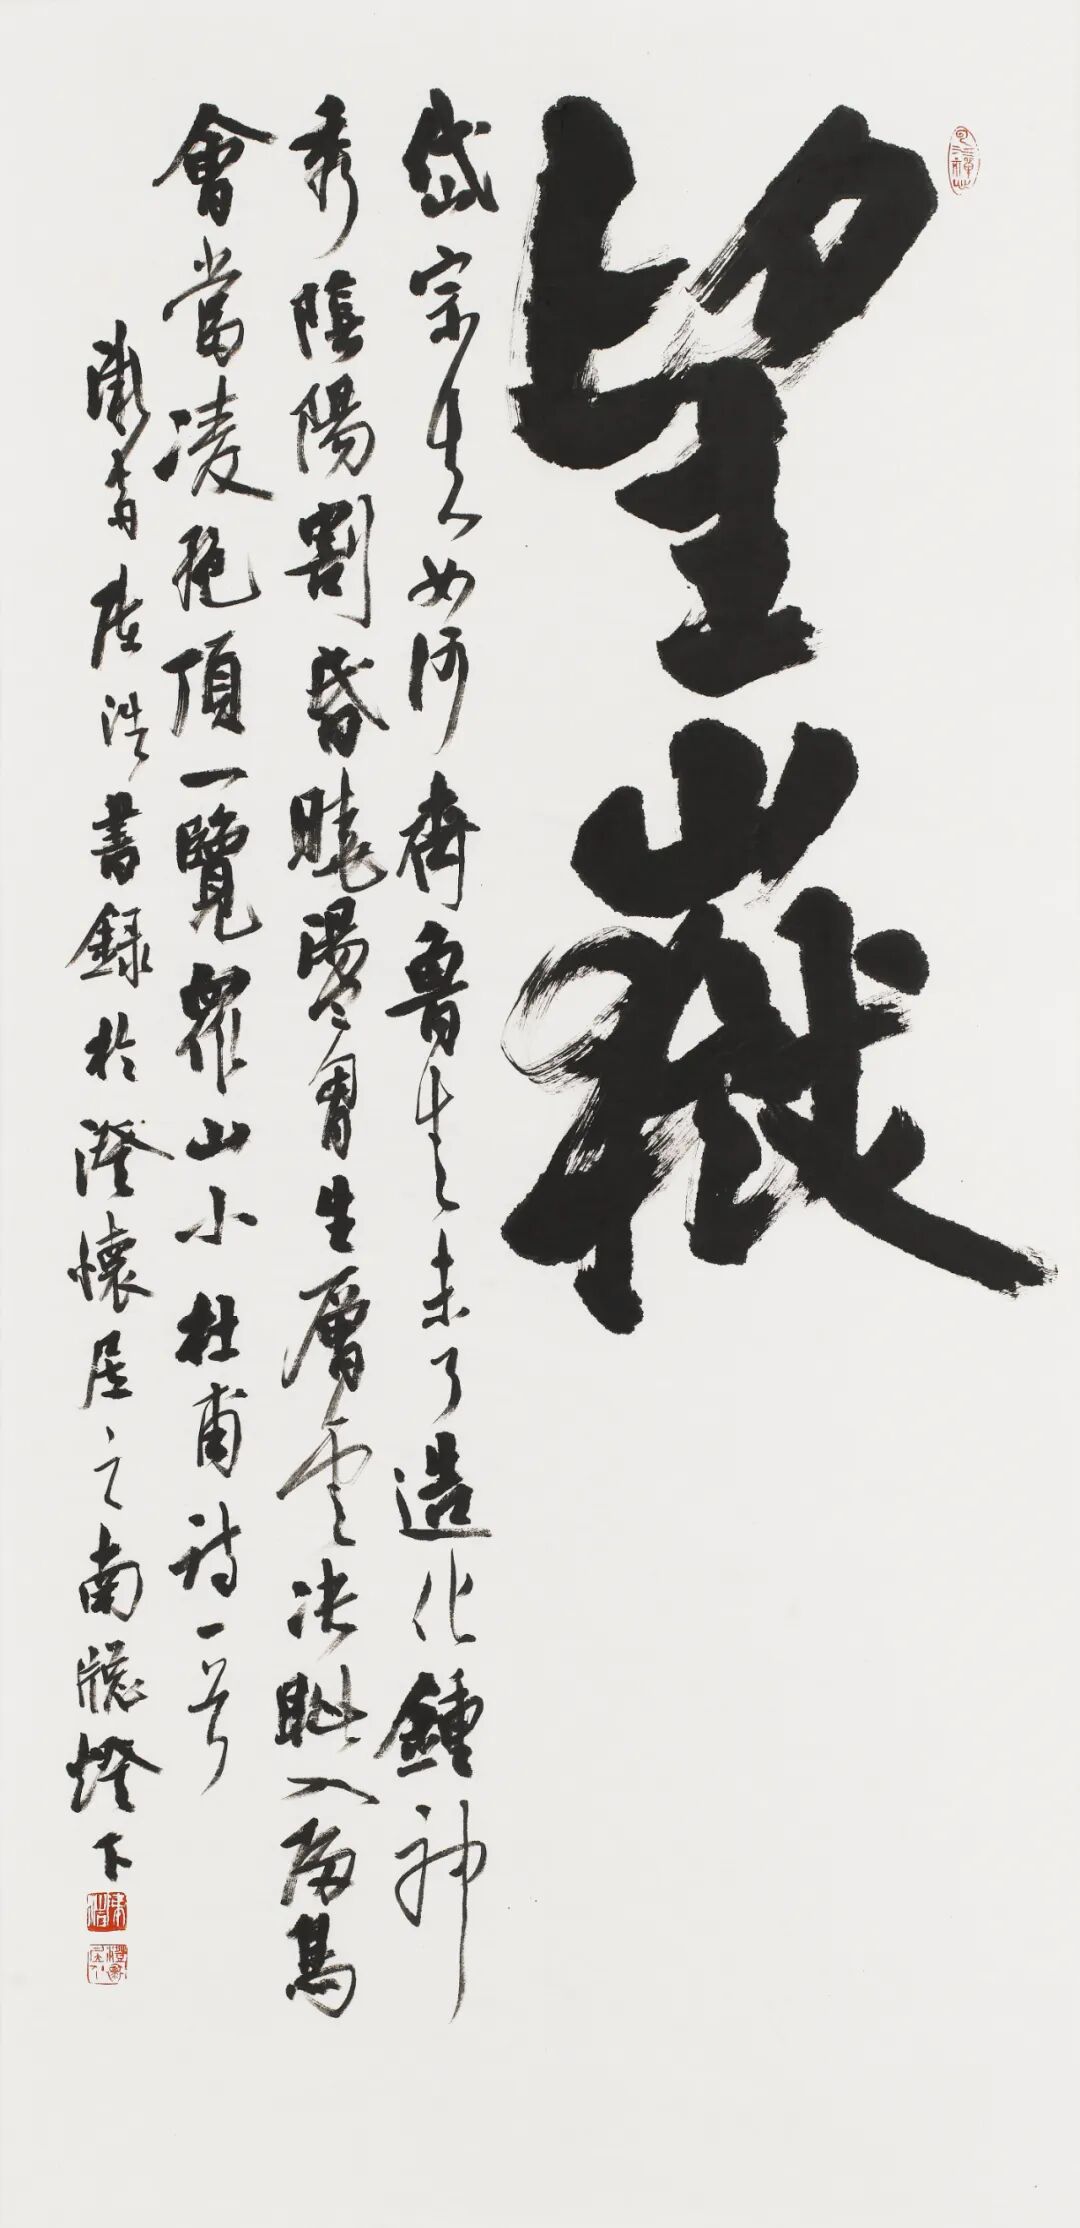 望嶽
岱宗夫如何齊魯青未了造化鍾神
秀陰陽割昏曉盪胷生層雲決眦入歸鳥
會當凌絕頂一覽眾山小杜甫詩一首
浩書錄於澄懷居之南牕燈下